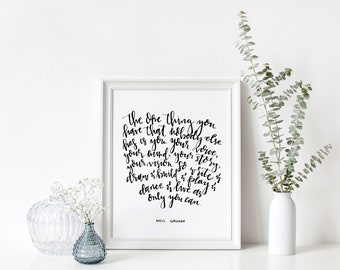 the one thing you
have that nobody else
has is you. your voice,
your mind, your story,
your vision. so write &
draw & build & play &
dance & live as
only you can.
NEIL GAIMAN